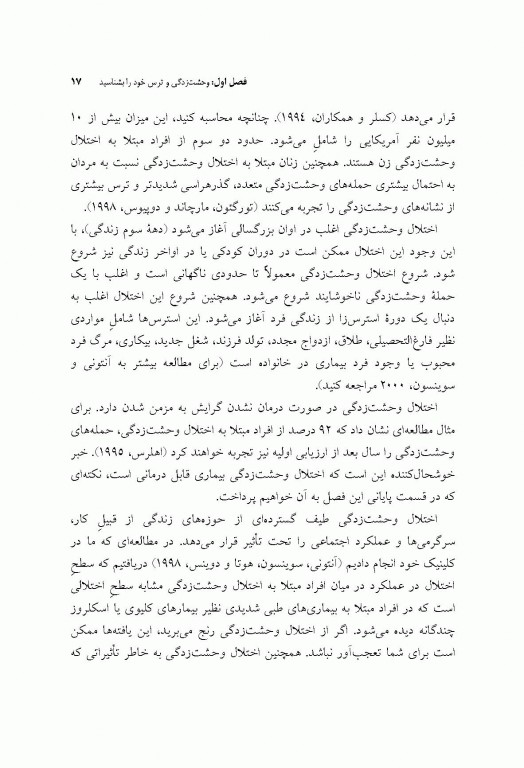 فصل اول: وحشت‌زدگی و ترس خود را بشناسید ۱۷
قرار می‌دهد (کسلر و همکاران، ۱۹۹۴). چنانچه محاسبه کنید، این میزان بیش از ۱۰
میلیون نفر آمریکایی را شاملِ می‌شود. حدود دو سوم از افراد مبتلا به اختلال
وحشت‌زدگی زن هستند. همچنین زنان مبتلا به اختلال وحشت‌زدگی نسبت به مردان
به احتمال بیشتری حمله‌های وحشت‌زدگی متعدد، گذرهراسی شدیدتر و ترس بیشتری
از نشانه‌های وحشت‌زدگی را تجربه می‌کنند (تورگئون، مارچاند و دوپیوس، ۱۹۹۸).
اختلال وحشت‌زدگی اغلب در اوان بزرگسالی آغاز می‌شود (دههٔ سوم زندگی)، با
این وجود این اختلال ممکن است در دوران کودکی یا در اواخر زندگی نیز شروع
شود. شروع اختلال وحشت‌زدگی معمولاً تا حدودی ناگهانی است و اغلب با یک
حملهٔ وحشت‌زدگی ناخوشایند شروع می‌شود. همچنین شروع این اختلال اغلب به
دنبال یک دورهٔ استرس‌زا از زندگی فرد آغاز می‌شود. این استرس‌ها شاملِ مواردی
نظیر فارغ‌التحصیلی، طلاق، ازدواج مجدد، تولد فرزند، شغل جدید، بیکاری، مرگ فرد
محبوب یا وجود فرد بیماری در خانواده است (برای مطالعه بیشتر به آنتونی و
سوینسون، ۲۰۰۰ مراجعه کنید).
اختلال وحشت‌زدگی در صورت درمان نشدن گرایش به مزمن شدن دارد. برای
مثال مطالعه‌ای نشان داد که ۹۲ درصد از افراد مبتلا به اختلال وحشت‌زدگی، حمله‌های
وحشت‌زدگی را سال بعد از ارزیابی اولیه نیز تجربه خواهند کرد (اهلرس، ۱۹۹۵). خبر
خوشحال‌کننده این است که اختلال وحشت‌زدگی بیماری قابل درمانی است، نکته‌ای
که در قسمت پایانی این فصل به آن خواهیم پرداخت.
اختلال وحشت‌زدگی طیف گسترده‌ای از حوزه‌های زندگی از قبیلِ کار،
سرگرمی‌ها و عملکرد اجتماعی را تحت تأثیر قرار می‌دهد. در مطالعه‌ای که ما در
کلینیک خود انجام دادیم (آنتونی، سوینسون، هوتا و دوینس، ۱۹۹۸) دریافتیم که سطحِ
اختلال در عملکرد در میان افراد مبتلا به اختلال وحشت‌زدگی مشابه سطحِ اختلالی
است که در افراد مبتلا به بیماری‌های طبی شدیدی نظیر بیمارهای کلیوی یا اسکلروز
چندگانه دیده می‌شود. اگر از اختلال وحشت‌زدگی رنج می‌برید، این یافته‌ها ممکن
است برای شما تعجب‌آور نباشد. همچنین اختلال وحشت‌زدگی به خاطر تأثیراتی که